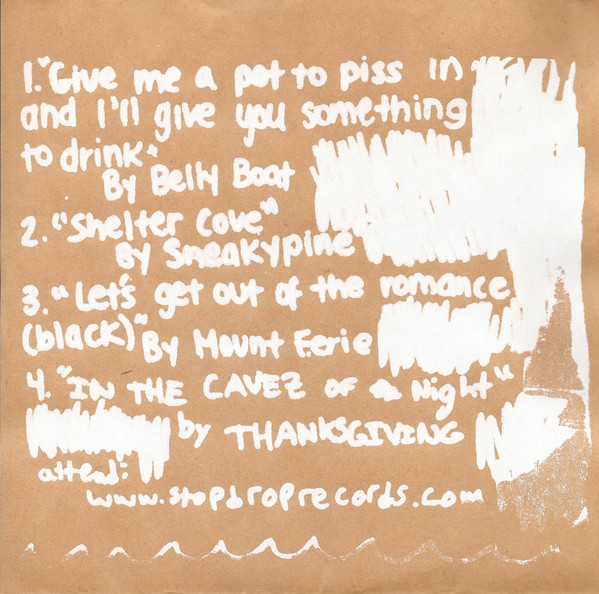 1. "Give me a pot to piss in
and I'll give you something
to drink"
By Belly Boat
2. "Shelter Cove"
By Sneakypine
3. "Let's get out of the romance
(black)" By Mount Eerie
4. "IN THE CAVEZ OF Night"
by THANKSGIVING
attend:
www.stopdroprecords.com